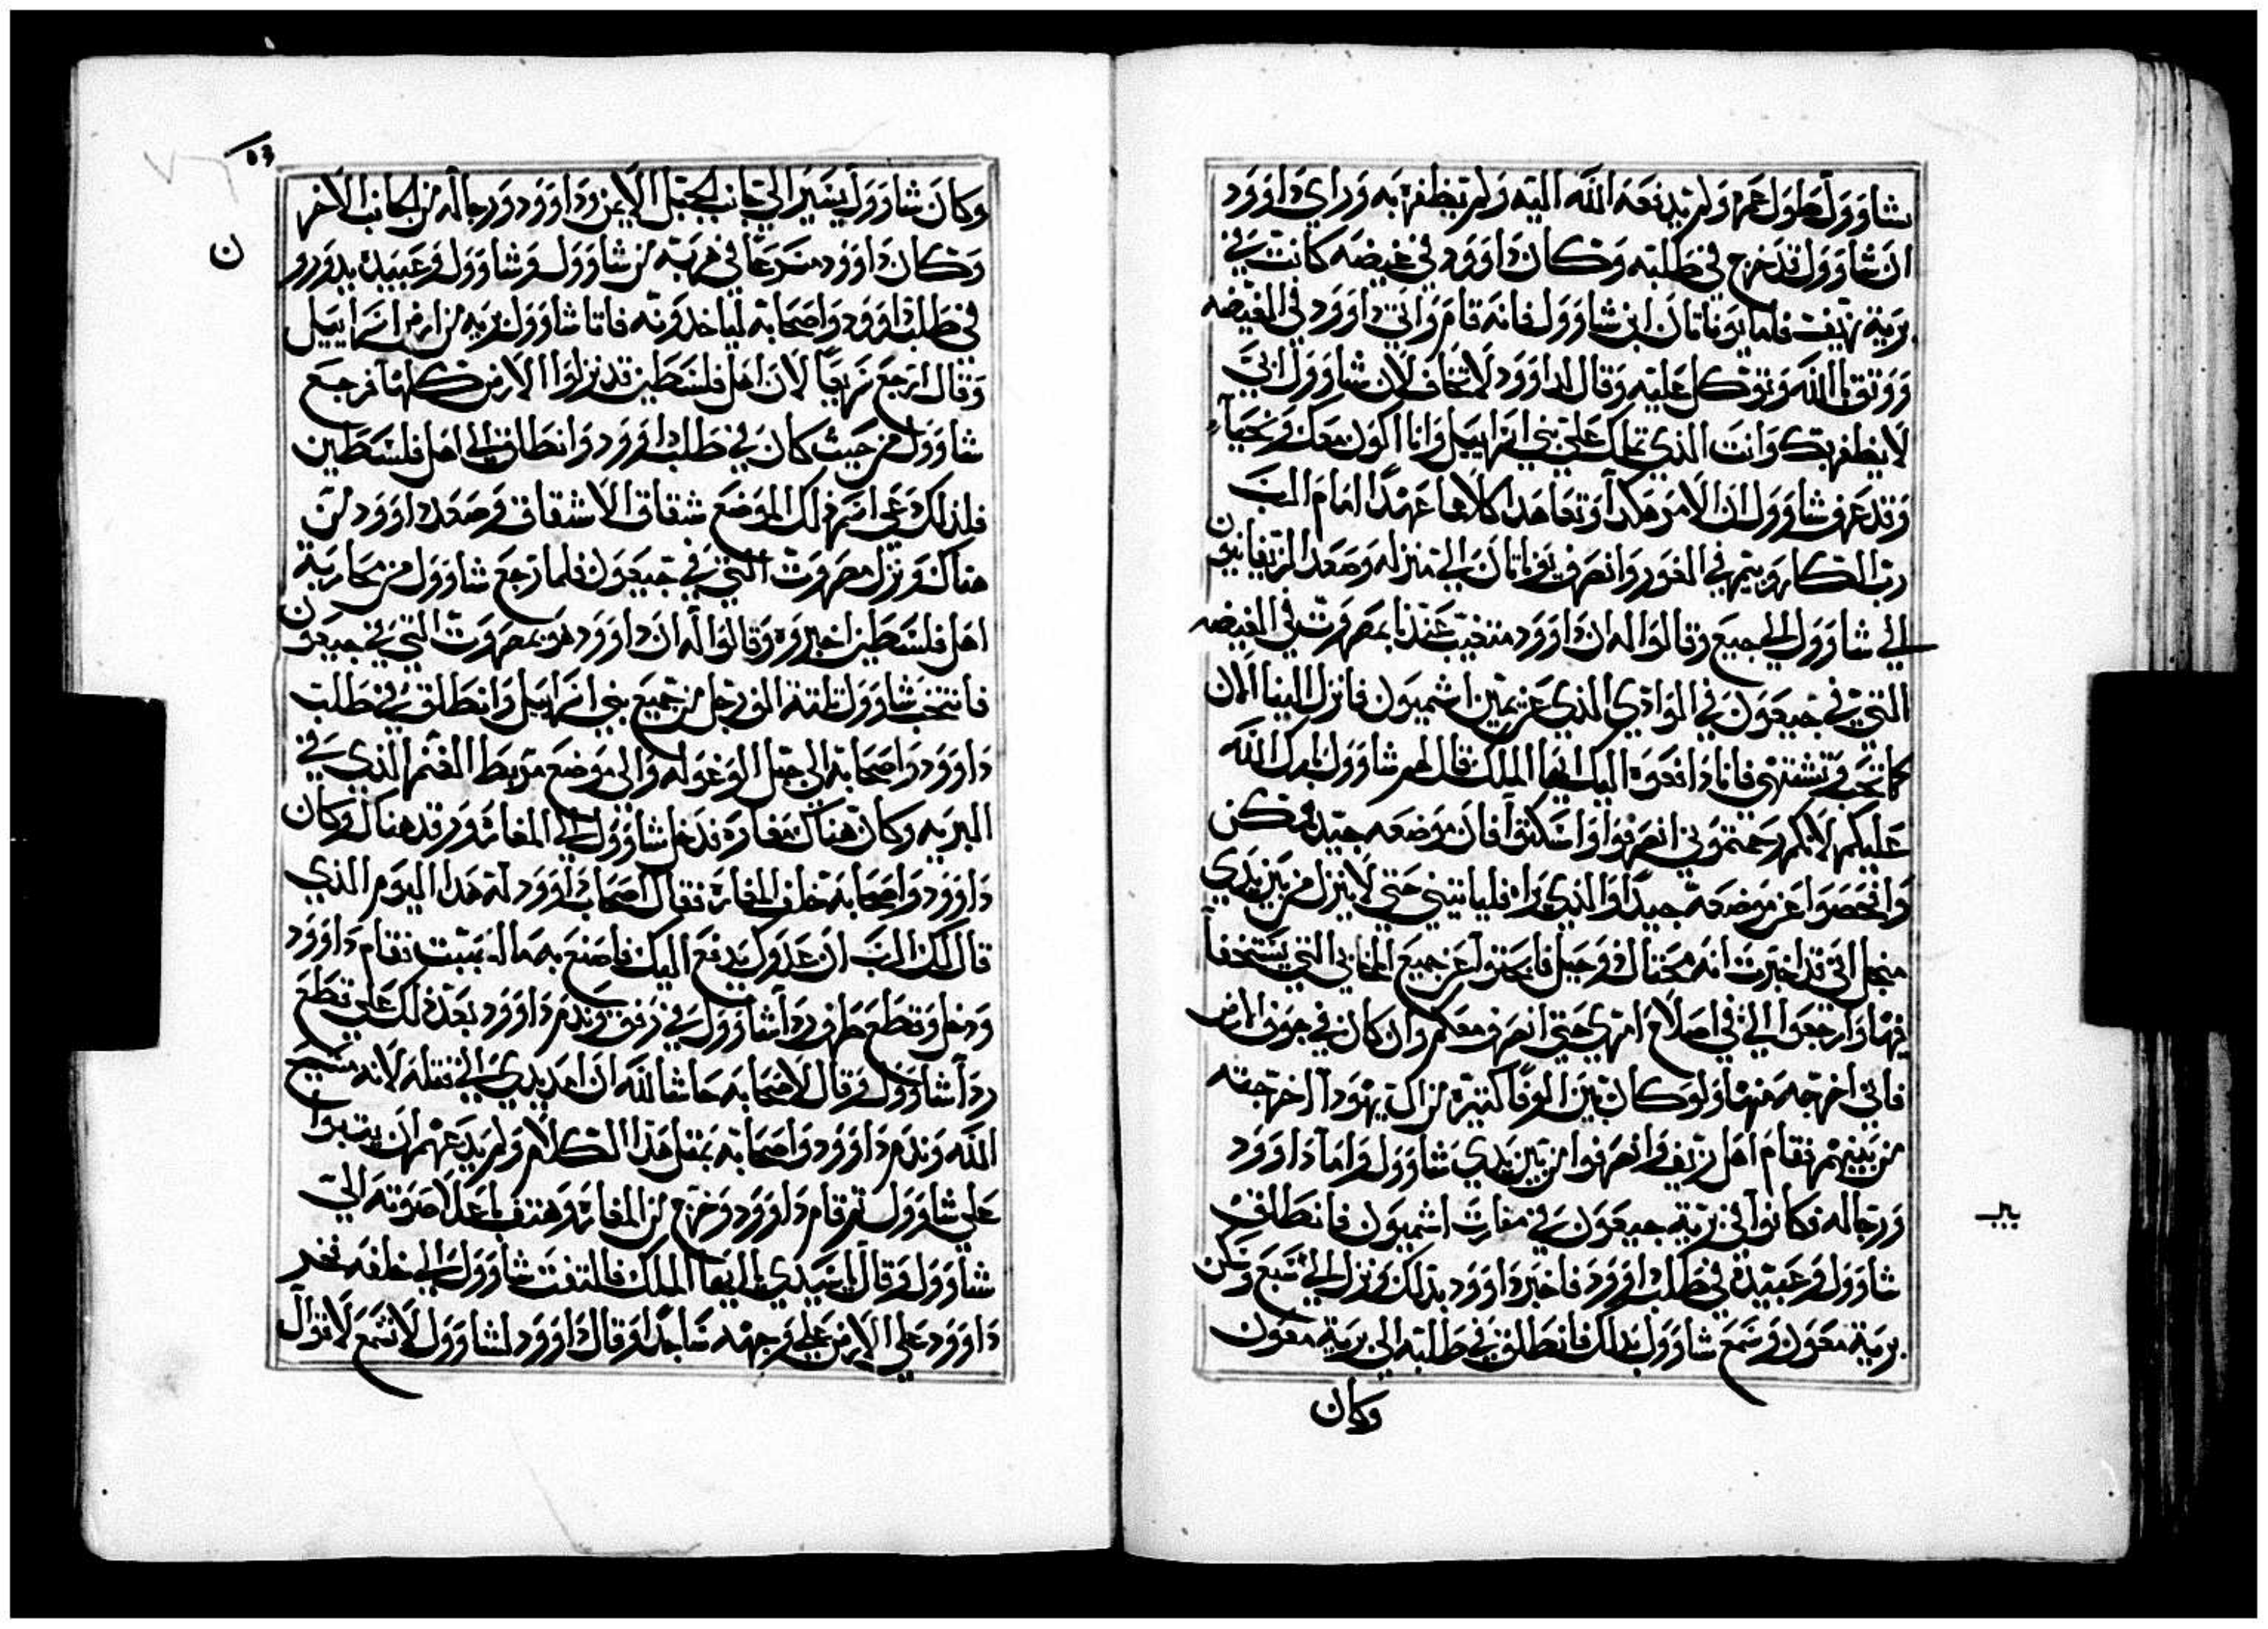 شاوول طول عمره ولم يدفعه الله اليه ولم يظفر به وراي داوود
ان شاوول قد خرج في طلبه وكان داوود في غيضه كانت في
برية زيف فلما يوناتان ابن شاوول فانه قام واتي داوود في الغيضه
ووثق بالله وتوكل عليه وقال لداوود لا تخاف لان شاوول ابي
لا يظفر بك وانت الذي تملك علي بني اسراييل وانا اكون معك وتحيا
وقد عرف شاوول ان الامر هكدا وتعاهدا كلاهما عهدا امام الرب
رب الكل وبيتهم في الغور وانصرف يوناتان الي منزله وصعد الزيفانيون
الي شاوول الي جبيع وقالوا له ان داوود متغيب عندنا بمصروت في الغيضه
التي في جبيعون في الوادي الذي عن يمين اشميون فانزل الينا الان
كما تحب وتشتهي فانا دافعوه اليك ايها الملك قال لهم شاوول بارك الله
عليكم لانكم رحمتموني انصرفوا واسكنوا فان موضعه جيد فمكن
وافحصوا عن موضعه جيدا والذي يراه فلياتيني حتي لا ينزل من بين يدي
منجل اني قد اخبرت انه محتال وحيل فابحثوا عن جميع المخابي التي يستخفا
فيها وارجعوا الي في اصلاح امري حتي انصرف معكم وان كان في جوف الارض
فاني اخرجه منها ولو كان بين الوفا كتيره من ال يهودا لاخرجته
من بينهم فقام اهل زيف وانصرفوا من بين يدي شاوول واما داوود
ورجاله فكانوا في برية جبيعون في مغارت اشميون فانطلق
شاوول وعبيده في طلب داوود فاخبر داوود بذلك ونزل الي سبع وسكن
برية معون وسمع شاوول بذلك فانطلق في طلبه الي برية معون
وكان
٥٣
وكان شاوول يسير الي جانب الجبل الايمن وداوود ورجاله من الجانب الاخر
وكان داوود مسرعا في هربه من شاوول وشاوول وعبيده يدورو
ن
في طلب داوود واصحابه لياخدونه فاتا شاوول بريد من ارض اسراييل
وقال ارجع سريعا لان اهل فلسطين قد نزلوا الارض كلها فرجع
شاوول من حيث كان في طلب داوود وانطلق الي اهل فلسطين
فلذلك دعي اسم ذلك الموضع شقاق الاشقاق وصعد داوود من
هناك ونزل مصروت التي في جبيعون فلما رجع شاوول من محاربة
اهل فلسطين اخبروه وقالوا له ان داوود هو بمصروت التي في جبيعون
فانتخب شاوول تلتة الف رجل من جميع بني اسراييل وانطلق في طلب
داوود واصحابه الي جبل الوعوله والي موضع مربط الغنم الذي في
البريه وكان هناك مغاره فدخل شاوول الي المغاره ورقد هناك وكان
داوود واصحابه خلف المغاره فقال اصحاب داوود له هدا اليوم الذي
قال لك الرب ان عدوك يدفع اليك فاصنع به ما اليه سبيت فقام داوود
ودخل وقطع طرف ردا شاوول في رفق وندم داوود بعد ذلك علي قطع
ردا شاوول وقال لاصحابه حاشا لله ان امد يدي الي قتله لانه مسيح
الله وندم داوود واصحابه بمثل هذا الكلام ولم يدعهم ان يتبوا
علي شاوول ثم قام داوود وخرج من المغاره وهتف باعلا صوته الي
شاوول وقال يا سيدي يا ايها الملك فالتفت شاوول الي خلفه فخر
داوود علي الارض علي وجهه ساجدا وقال داوود لشاوول لا تسمع لاقوال